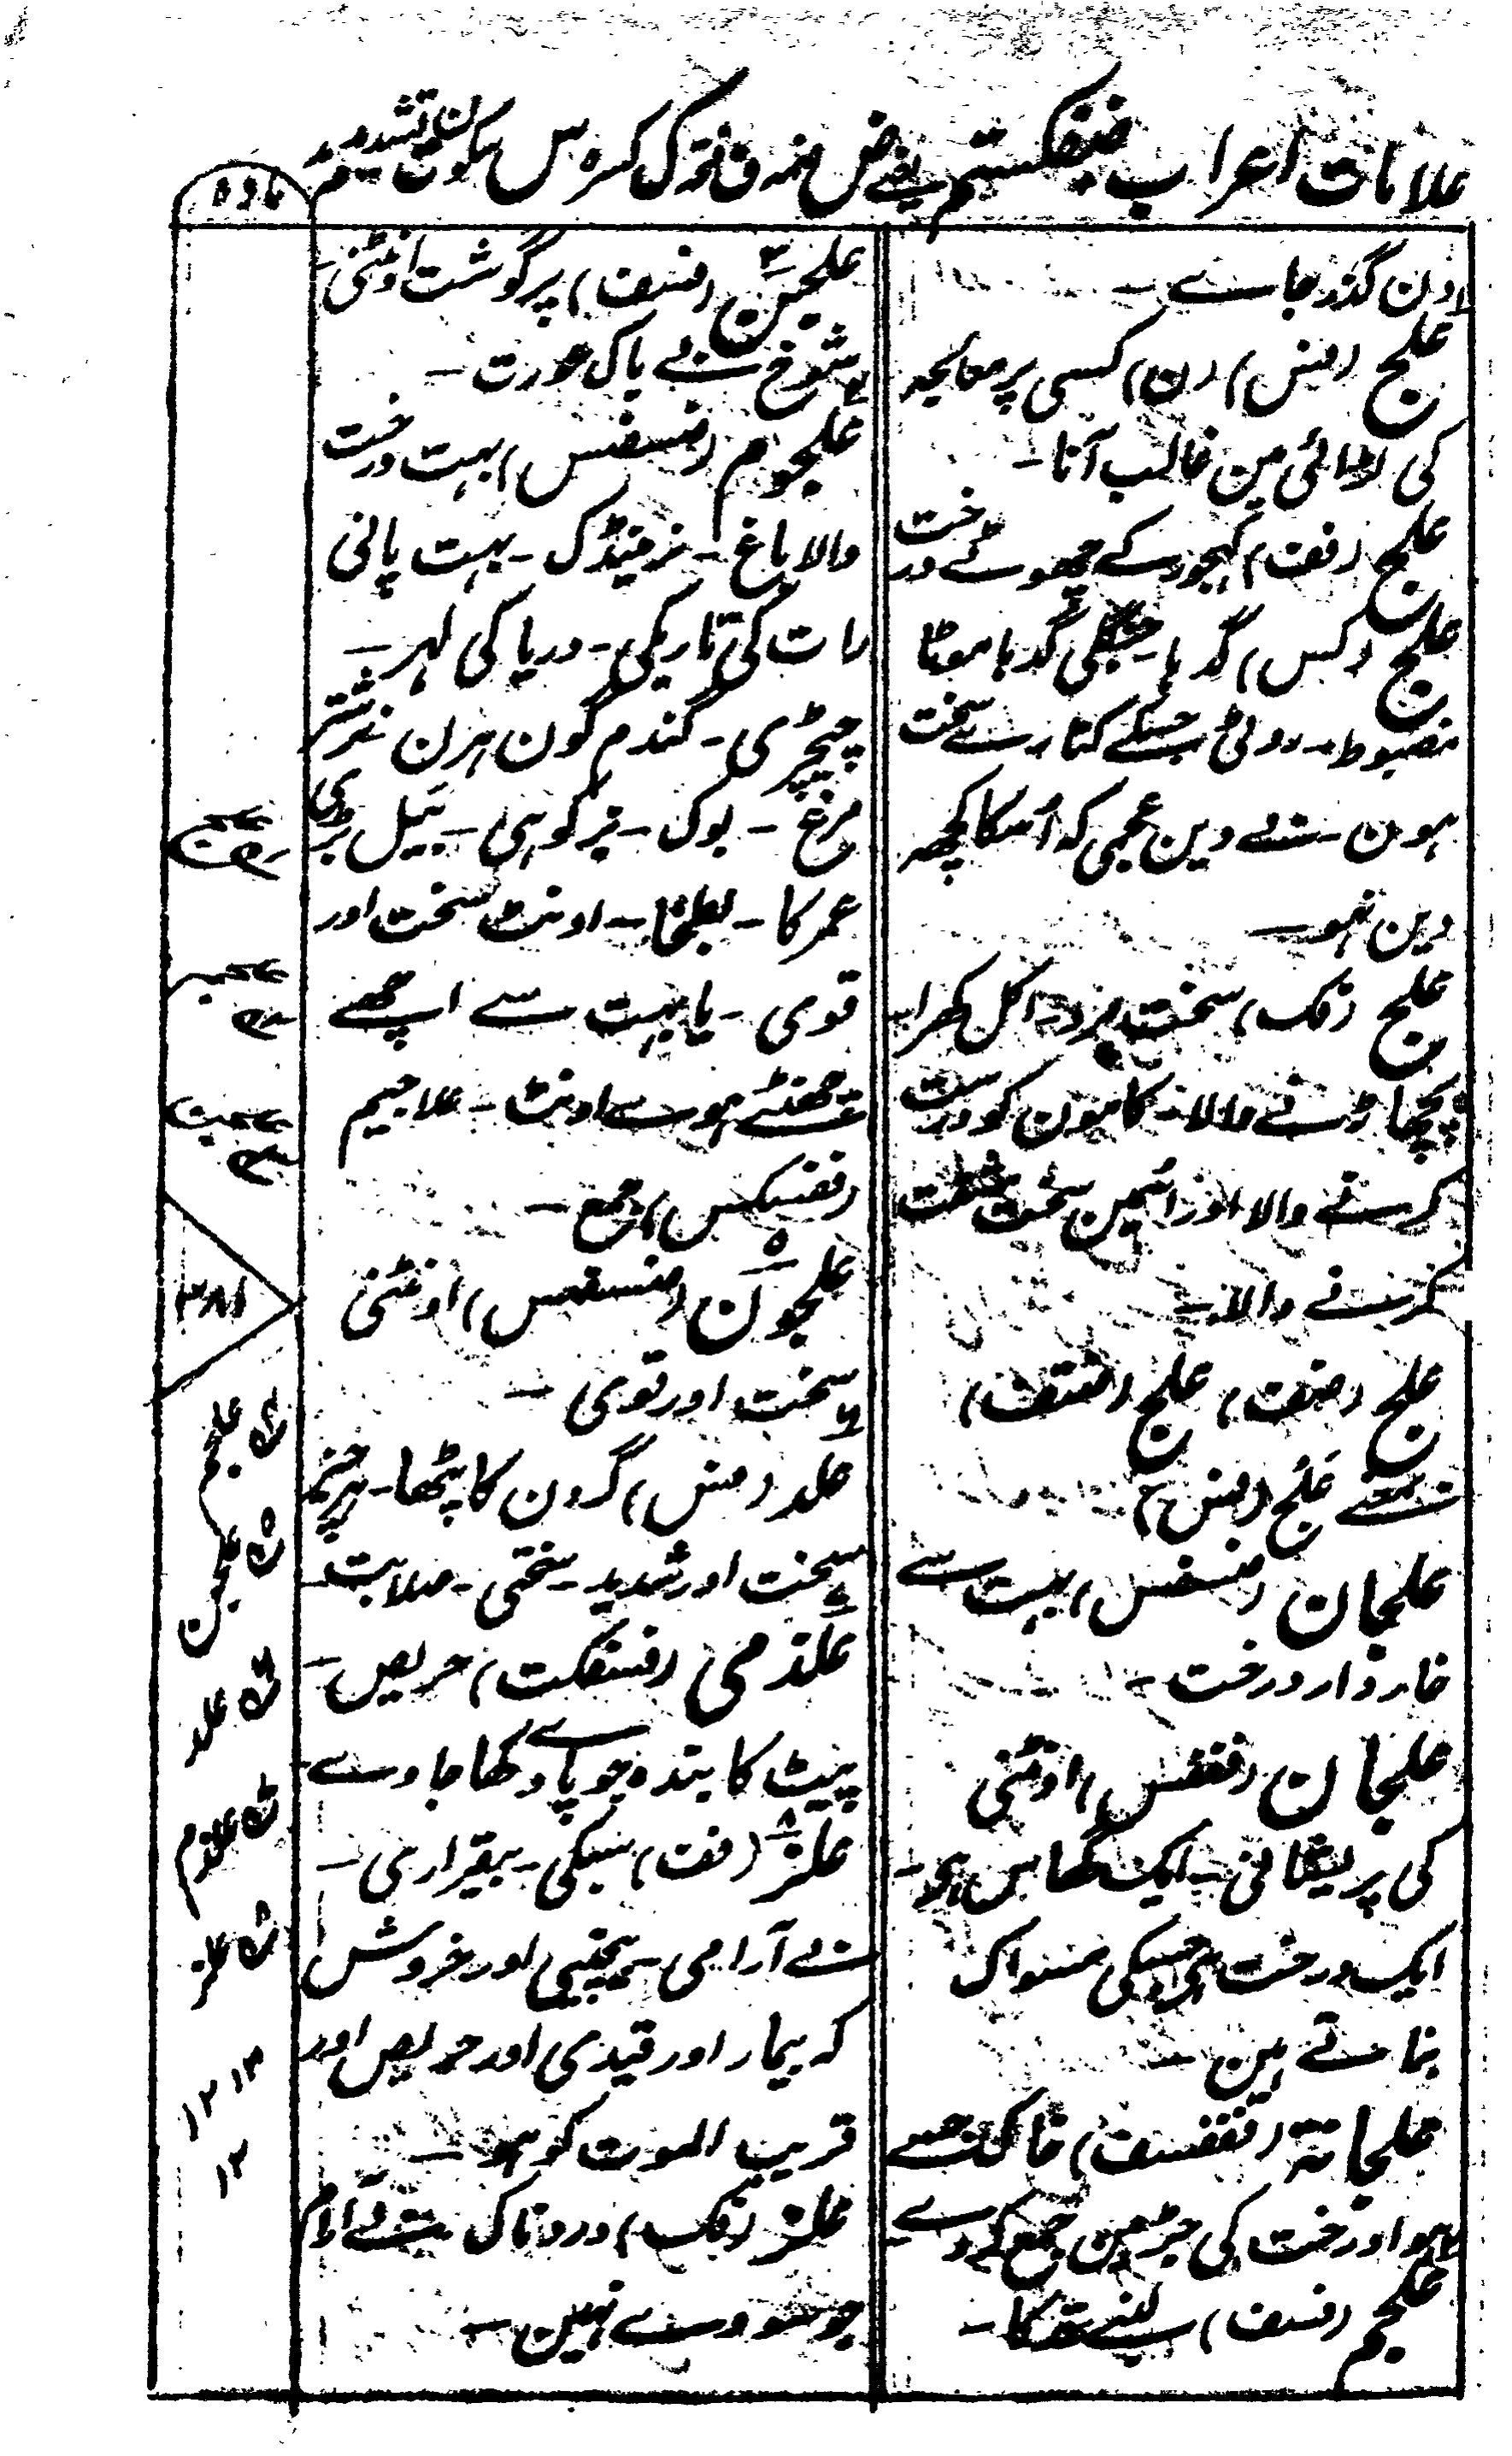 علامات اعراب ضفکستم یعنے ض ضمہ ف فتحہ ک کسرہ س سکون ت تشدید
مادہ
دن گذر جاے ـ
علج (فس) (ن) کسی پر معالجہ
کی لڑائی مین غالب آنا ـ
علج (فف) کہجور کے چھوٹے درخت
علج (کس) گدہا ـ جنگلی گدہا موٹا
مضبوط ـ روٹی جسکے کنارے سخت
ہون ـ بے دین عجمی کہ اُسکا کچھ
دین نہو ـ
علج (فک) سخت مرد اکل کھرا
پچھاڑنے والا ـ کامون کو درست
کرنے والا اور اُنمین سخت محنت
کرنے والا ـ
علج (ضف) علج (ضتف)
بمعنے عَلج (فس)
علجان (ضسفس) بہت سے
خاردار درخت ـ
علجان (فففس) اونٹنی
کی پریشانی ـ ایک گھاس ہی ـ
ایک درخت ہی جسکی مسواک
بناتے ہین ـ
علجانة (فففسف) خاک جسے
ہوا درخت کی جڑ مین جمع کردے
علجم (فسف) لنبے قد کا ـ
علجن (فسف) پرگوشت اونٹنی ـ
شوخ بے باک عورت ـ
علجوم (ضسضس) بہت درخت
والا باغ ـ نر مینڈک ـ بہت پانی
رات کی تاریکی ـ دریا کی لہر ـ
چیچڑی ـ گندم گون ہرن نر شتر
مرغ ـ بوک ـ بز کوہی ـ بیل بڑی
عمر کا ـ بطخا ـ اونٹ سخت اور
قوی ـ یا بہت سے اچھے
چھنٹے ہوے اونٹ ـ علاجیم
(ففسکس) جمع ـ
علجون (ضسضس) اونٹنی
سخت اور قوی ـ
علد (فس) گردن کا پٹھا ـ ہر چیز
سخت اور شدید ـ سختی ـ صلابت
علذمی (فسفکت) حریص ـ
پیٹ کا بندہ جو پاوے کھا جاوے
علز (فف) سبکی ـ بیقراری ـ
بے آرامی ـ بیچینی اور خروش
کہ بیمار اور قیدی اور حریص اور
قریب الموت کو ہو ـ
علز (فک) دردناک بے آرام
جو سووے نہین ـ
علجن
علجم
۳۸۱
علجم
علجن
علد
علذم
علز
۱۲
۱۲